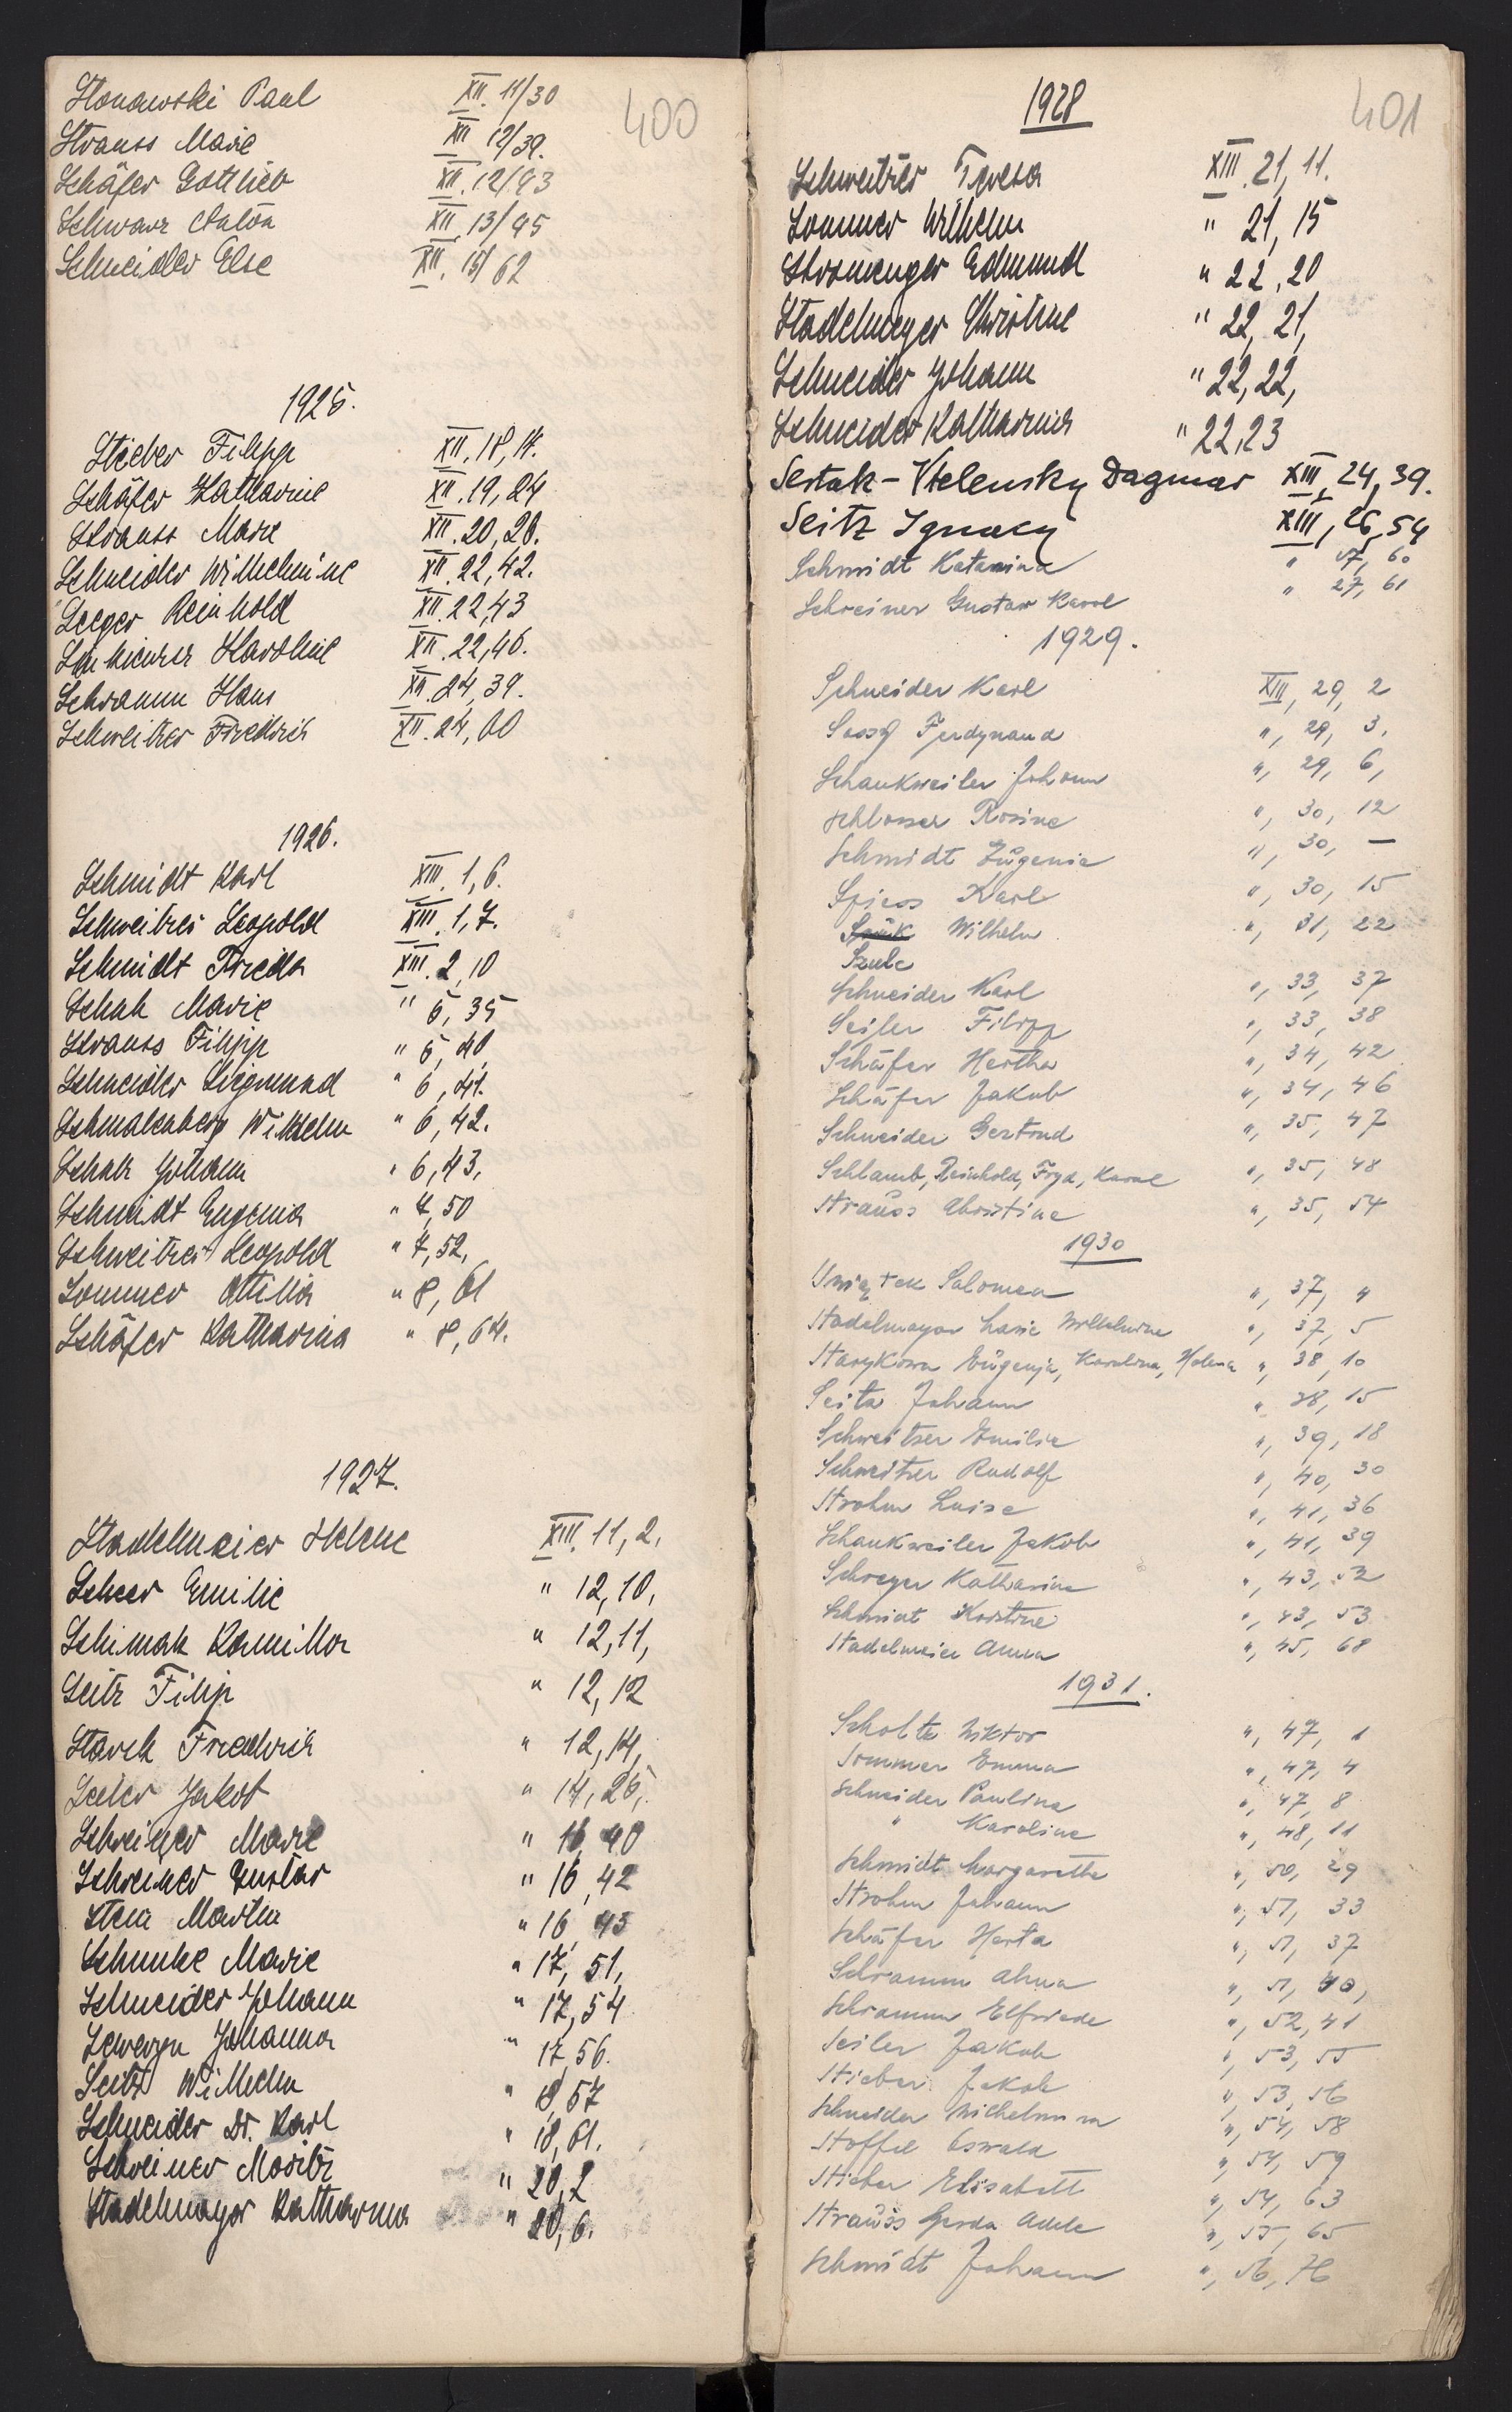 400
Stonawski Paul XII. 11/30
Strauss Marie XII 12/39.
Schäfer Gottlieb XII. 12/43
Schwarz Anton XII. 13/45
Schneider Else XII. 15/62
1925.
Stieber Filipp XII. 18, 14.
Schäfer Katharine XII. 19, 24
Strauss Marie XII. 20, 26.
Schneider Wilhelmine XII. 22, 42.
Seeger Reinhold XII. 22, 43
Karoline XII. 22, 46.
Schramm Hans XII. 24, 39.
Schweitzer Friedrich XII. 24, 60
1926.
Schmidt Karl XIII. 1, 6.
Schweitzer Leopold XIII. 1, 7.
Schmidt Frieda XIII. 2, 10
Schak Marie " 5, 35
Strauss Filipp " 5, 40
Schneider Siegmund " 6, 41.
Schmalenberg Wilhelm " 6, 42.
Schak Johann " 6, 43.
Schmidt Eugenia " 7, 50
Schweitzer Leopold " 7, 52.
Sommer Ottilia " 8, 61
Schäfer Katharina " 8, 64.
1927.
Stadelmeier Helene XIII. 11, 2.
Scheer Emilie " 12, 10.
Schimak Kamilla " 12, 11,
Seitz Filip " 12, 12
Starck Friedrich " 12, 14,
Seiler Jakob " 14, 26,
Marie " 16, 40
Schreiner Gustav " 16, 42
Stein Martin " 16, 43
Schunke Marie " 17, 51,
Schneider Johann " 17, 54
Johanna " 17, 56.
Seitz Wilhelm " 18, 57
Schneider Dr. Karl " 18, 61.
Schreiner Moritz " 20, 2
Stadelmayer Katharina " 20, 6.
401
1928
Schweitzer Teresa XIII. 21, 11.
Sommer Wilhelm " 21, 15
Stromenger Edmund " 22, 20
Stadelmeyer Christine " 22, 21,
Schneider Johann " 22, 22,
Schneider Katharina " 22, 23
Sestak - Vtelensky Dagmar XIII, 24, 39.
Seitz Ignacy XIII, 26, 54
Schmidt Katarina " 27, 60
Schreiner Gustaw Karol " 27, 61
1929.
Schneider Karl XIII, 29, 2
Ferdynand ", 29, 3.
Schankweiler Johann ", 29, 6,
Schlosser Rosine ", 30, 12
Schmidt Eugenie ", 30, —
Spiess Karl ", 30, 15
Wilhelm ", 31, 22
Szulc
Schneider Karl ", 33, 37
Seiler Filipp ", 33, 38
Schäfer Hertha ", 34, 42
Schäfer Jakob ", 34, 46
Schneider Gertrud ", 35, 47
Schlamb, Reinhold, Fryd, Karol ", 35, 48
Strauss Christine ", 35, 54
1930
Salomea ", 37, 4
Stadelmayer Wilhelmine ", 37, 5
Starykowa Eugenja, Karolina, Helena ", 38, 10
Seitz Johann ", 38, 15
Schweitzer Emilie ", 39, 18
Schweitzer Rudolf ", 40, 30
Strohm Luise ", 41, 36
Schankweiler Jakob ", 41, 39
Schreyer Katharine ", 43, 52
Schmidt Kristine ", 43, 53
Stadelmeier Anna ", 45, 68
1931.
Scholtz Wiktor ", 47, 1
Sommer Emma ", 47, 4
Schneider Paulina ", 47, 8
" Karoline ", 48, 11
Schmidt Margarethe ", 50, 29
Strohm Johann ", 51, 33
Schäfer Herta ", 51, 37
Schramm Alma ", 51, 40,
Schramm Elfriede ", 52, 41
Seiler Jakob ", 53, 55
Stieber Jakob ", 53, 56
Schneider Wilhelmina ", 54, 58
Stoffel Oswald ", 54, 59
Stieber Elisabeth ", 54, 63
Strauss Gerda Adele ", 55, 65
Schmidt Johann ", 56, 76